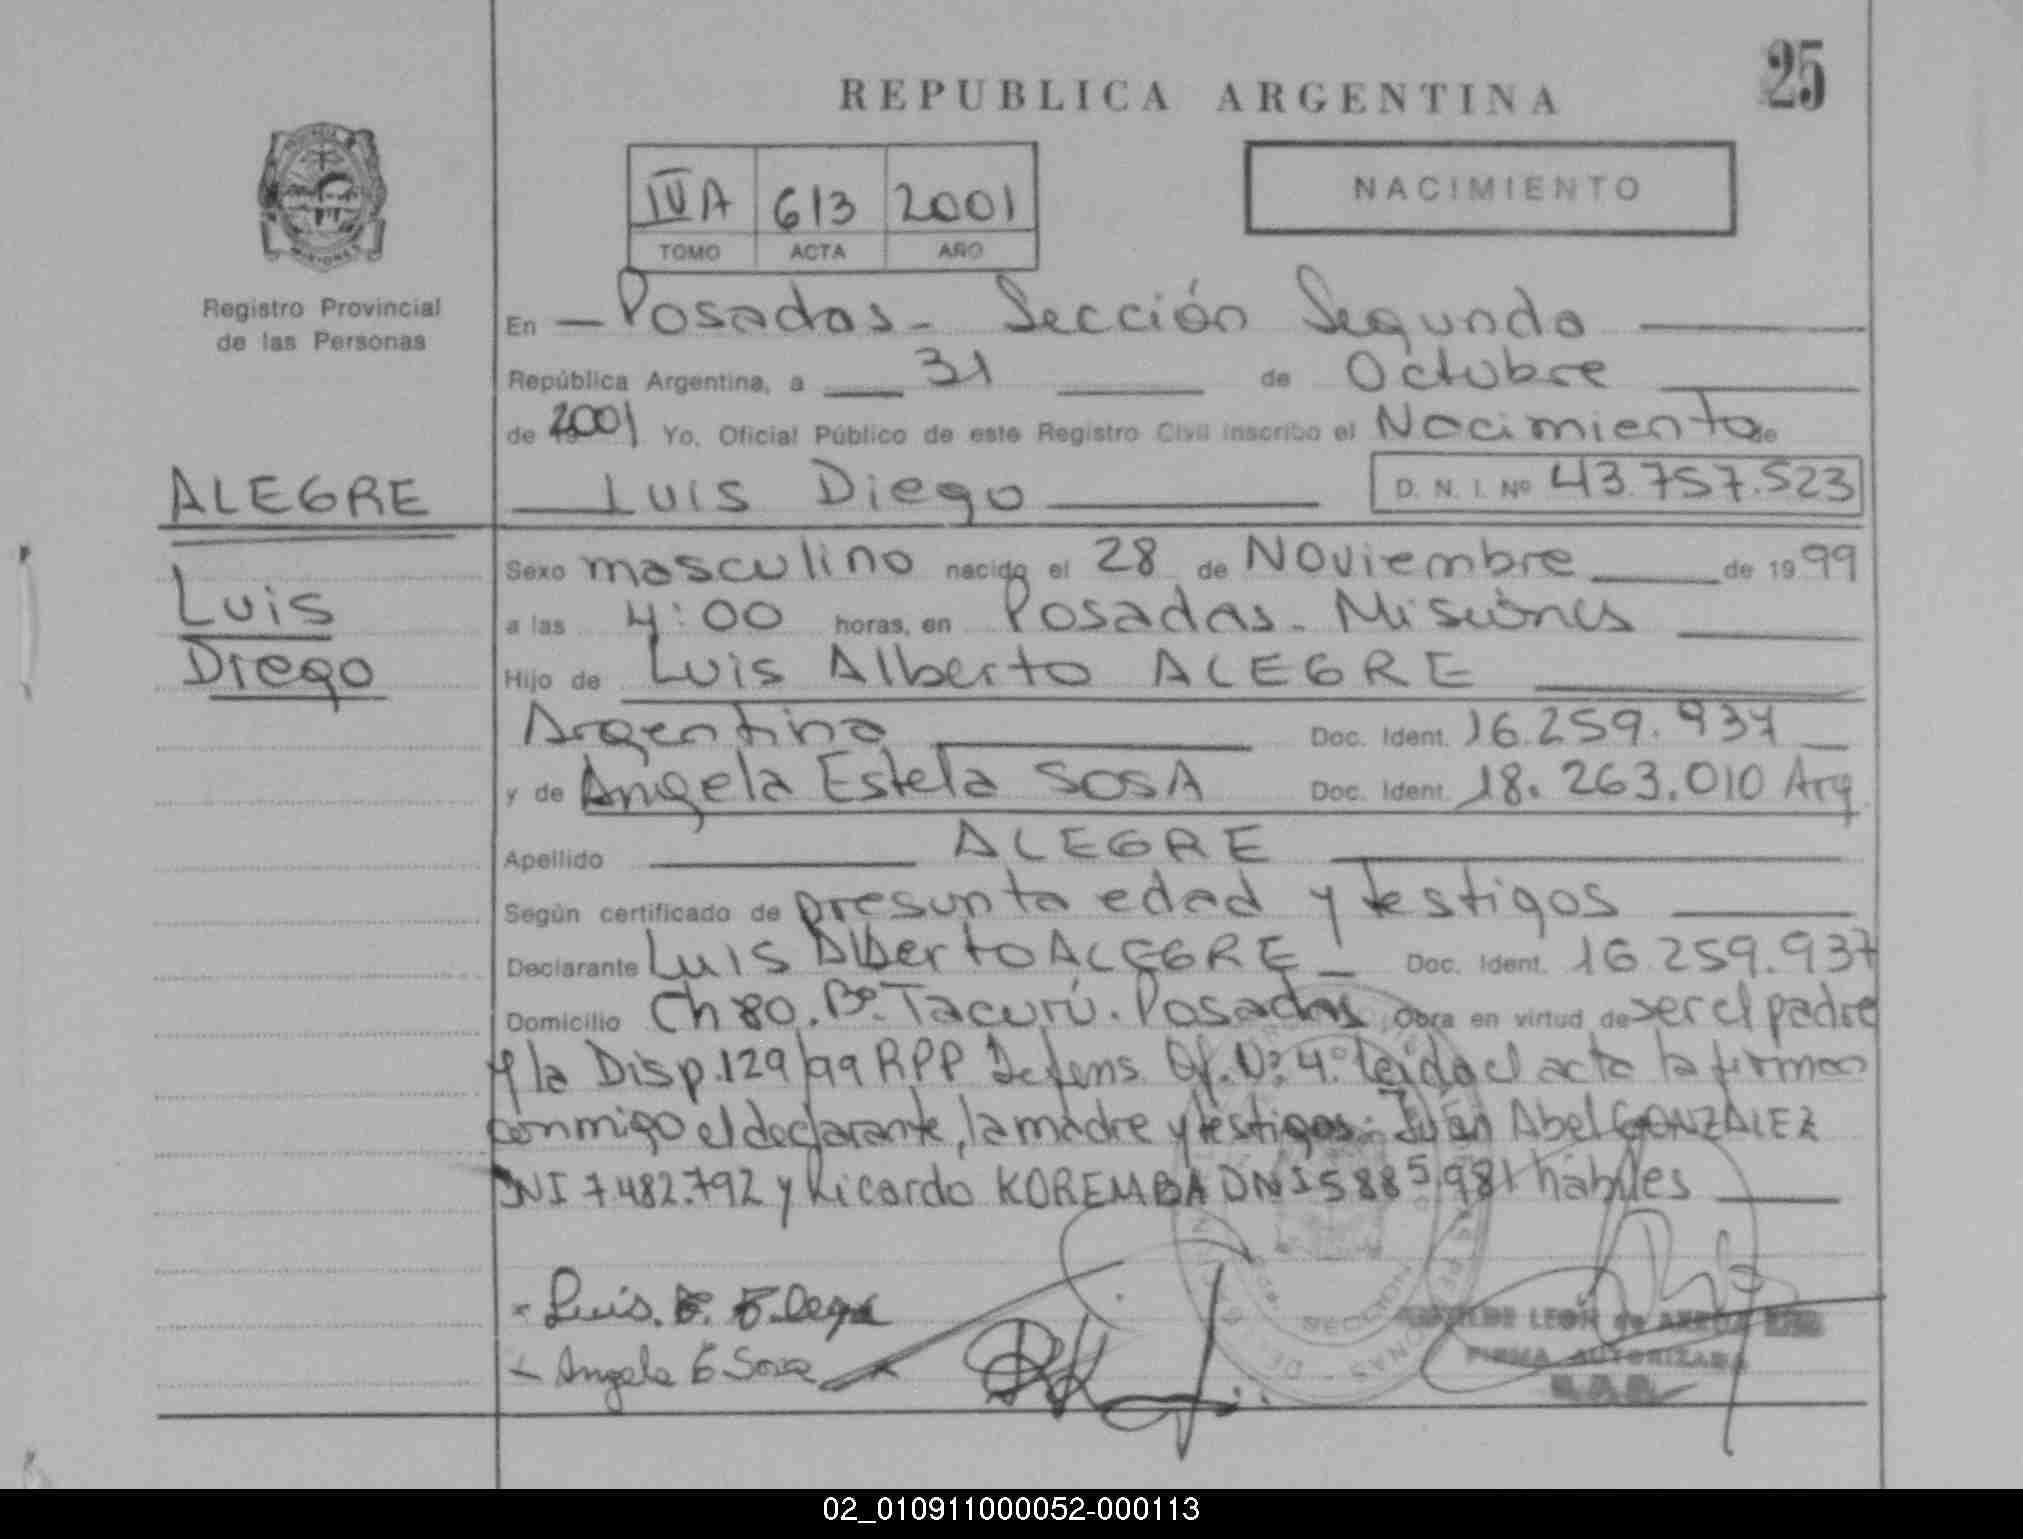 25
REPUBLICA ARGENTINA
IVA 613 2001
TOMO ACTA AÑO
NACIMIENTO
MISIONES
Registro Provincial
de las Personas
En - Posadas - Sección Segunda
República Argentina, a 31 de Octubre
de 2001 Yo, Oficial Público de este Registro Civil inscribo el Nacimiento de
ALEGRE
Luis Diego D. N. I. Nº 43.757.523
Luis
Diego
Sexo masculino nacido el 28 de Noviembre de 1999
a las 4:00 horas, en Posadas - Misiones
Hijo de Luis Alberto ALEGRE
Argentina Doc. Ident. 16.259.937
y de Angela Estela SOSA Doc. Ident. 18.263.010 Arg.
Apellido ALEGRE
Según certificado de presunta edad y testigos
Declarante Luis Alberto ALEGRE - Doc. Ident. 16.259.937
Domicilio Ch 80. Bº. Tacurú. Posadas Obra en virtud de ser el padre
y la Disp. 129/99 RPP Defens. Of. Nº. 4º leída el acta la firman
conmigo el declarante, la madre y testigos: Juan Abel GONZALEZ
DNI 7482.792 y Ricardo KOREMBA DNI 5885981 hábiles
Luis.
Angela E Sosa
LEÓN de
FIRMA AUTORIZADA
02_010911000052-000113